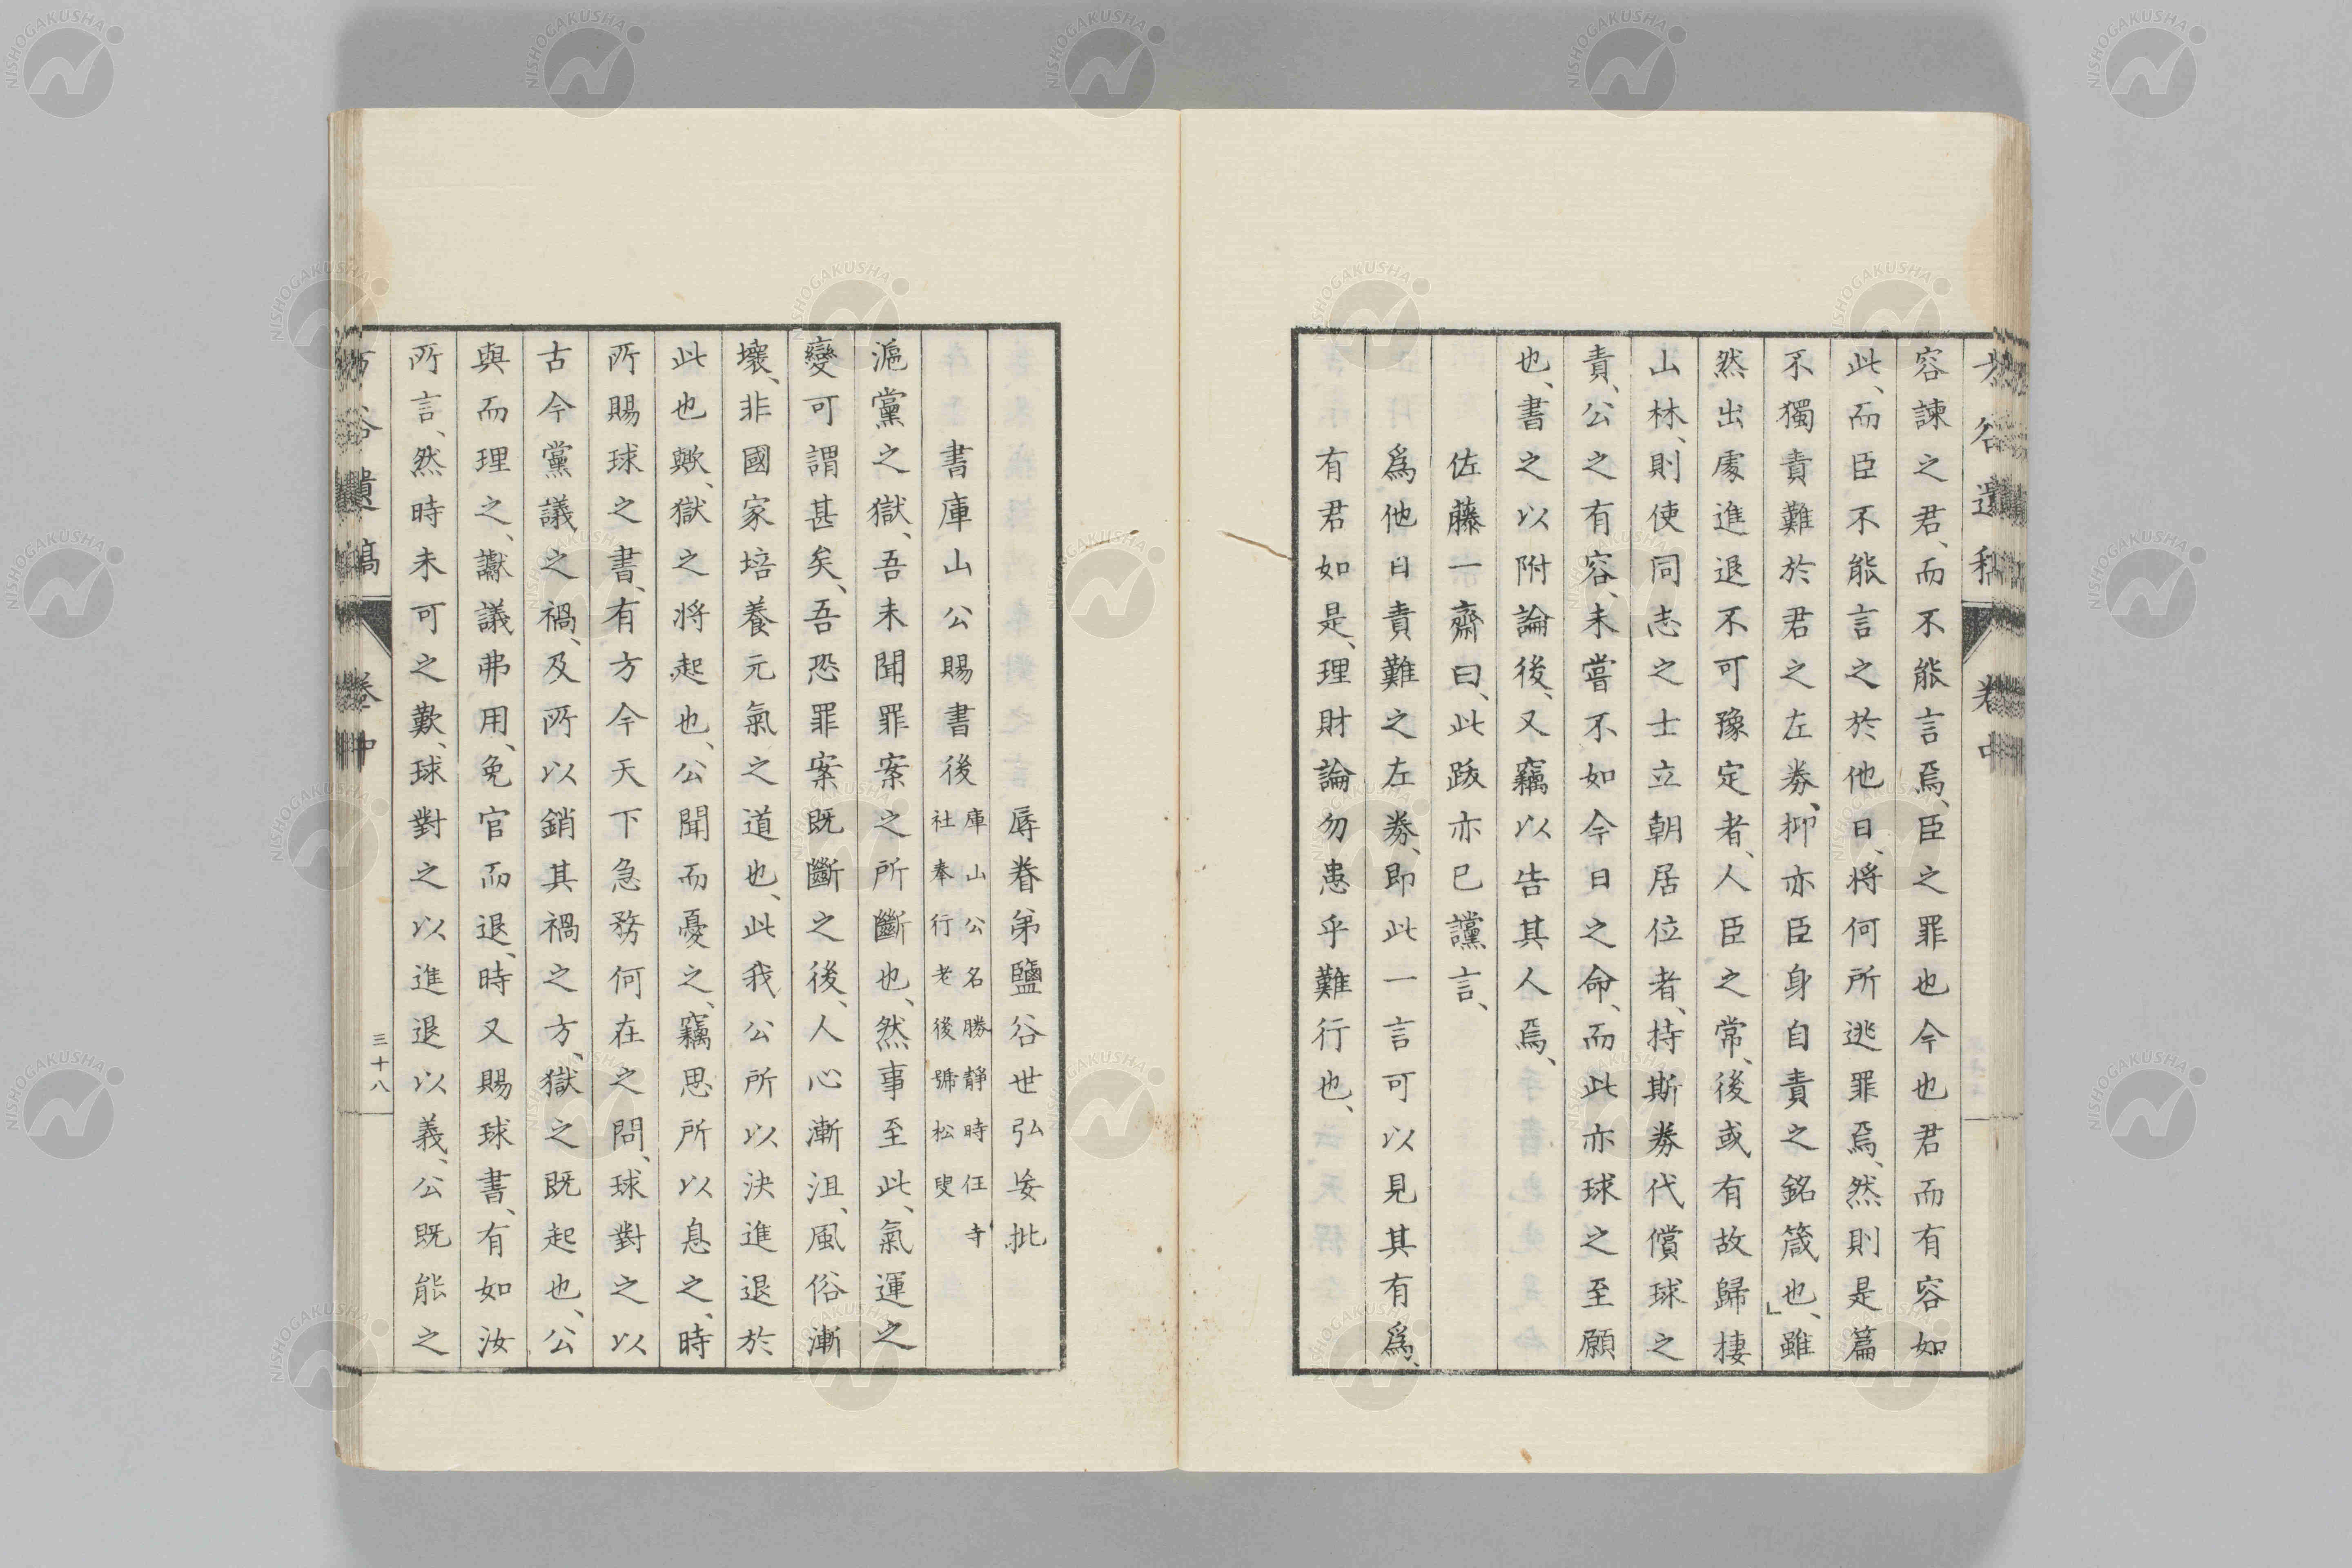 容諫之君、而不能言焉、臣之罪也今也君而有容如
此、而臣不能言之於他日、將何所逃罪焉、然則是篇
不獨責難於君之左券、抑亦臣身自責之銘箴也、」雖
然出處進退不可豫定者、人臣之常、後或有故歸棲
山林、則使同志之士立朝居位者、持斯券代償球之
責、公之有容、未嘗不如今日之命、而此亦球之至願
也、書之以附論後、又竊以告其人焉、
佐藤一齋曰、此跋亦已讜言、
爲他日責難之左券、即此一言可以見其有爲、
有君如是、理財論勿患乎難行也、
辱眷弟鹽谷世弘妄批
書庫山公賜書後
庫山公名勝靜時任寺
社奉行老後號松叟
滬黨之獄、吾未聞罪案之所斷也、然事至此、氣運之
變可謂甚矣、吾恐罪案既斷之後、人心漸沮、風俗漸
壞、非國家培養元氣之道也、此我公所以決進退於
此也歟、獄之將起也、公聞而憂之、竊思所以息之、時
所賜球之書、有方今天下急務何在之問、球對之以
古今黨議之禍、及所以銷其禍之方、獄之既起也、公
與而理之、讞議弗用、免官而退、時又賜球書、有如汝
所言、然時未可之歎、球對之以進退以義、公既能之
遺稿 卷中
三十八
NISHOGAKUSHA